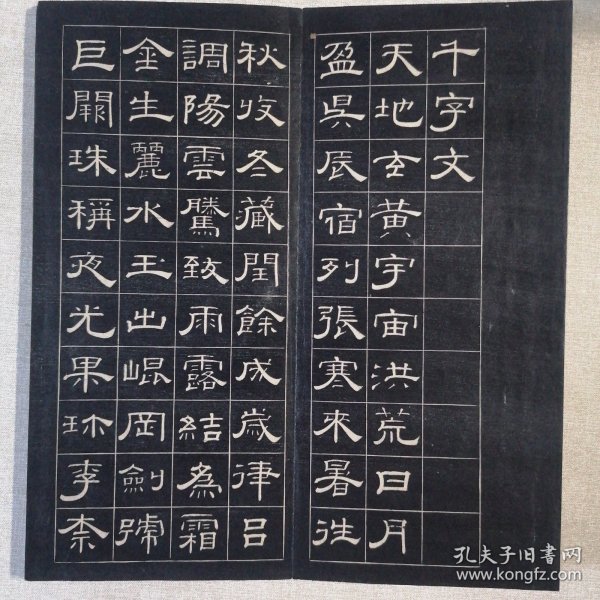 千字文
天地玄黃宇宙洪荒日月
盈昃辰宿列張寒來暑往
秋收冬藏閏餘成歲律呂
調陽雲騰致雨露結為霜
金生麗水玉出崐岡劍號
巨闕珠稱夜光果珍李柰
孔夫子旧书网
www.kongfz.com